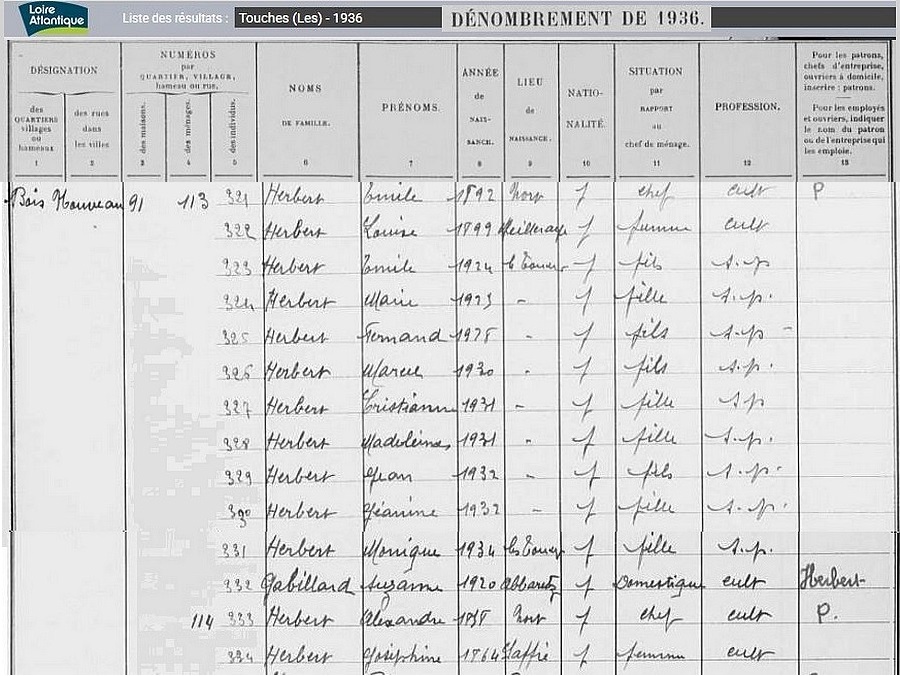 Loire Atlantique
Liste des résultats : Touches (Les) - 1936
DÉNOMBREMENT DE 1936.
DÉSIGNATION
des QUARTIERS villages ou hameaux
1
des rues dans les villes
2
NUMÉROS par QUARTIER, VILLAGE, hameau ou rue.
des maisons.
3
des ménages.
4
des individus.
5
NOMS DE FAMILLE.
6
PRÉNOMS.
7
ANNÉE de NAIS- SANCE.
8
LIEU de NAISSANCE.
9
NATIO- NALITÉ.
10
SITUATION par RAPPORT au chef de ménage.
11
PROFESSION.
12
Pour les patrons, chefs d'entreprise, ouvriers à domicile, inscrire : patrons.
Pour les employés et ouvriers, indiquer le nom du patron ou de l'entreprise qui les emploie.
13
Bois Nouveau 91 113 321 Herbert Emile 1892 Nort f chef cult P
322 Herbert Louise 1899 Meilleraye f femme cult
323 Herbert Emile 1924 f fils s.p
324 Herbert Marie 1925 - f fille s.p.
325 Herbert Fernand 1928 - f fils s.p -
326 Herbert Marcel 1930 - f fils s.p.
327 Herbert Cristianne 1931 - f fille s p
328 Herbert Madeleine 1931 - f fille s.p.
329 Herbert Jean 1932 - f fils s.p.
330 Herbert Jéanine 1932 - f fille s.p.
331 Herbert Monique 1934 les Touches f fille s.p.
332 Gabillard Suzanne 1920 Abbaretz f Domestique cult Herbert
114 333 Herbert Alexandre Nort f chef cult P.
334 Herbert Joséphine 1864 Saffré f femme cult